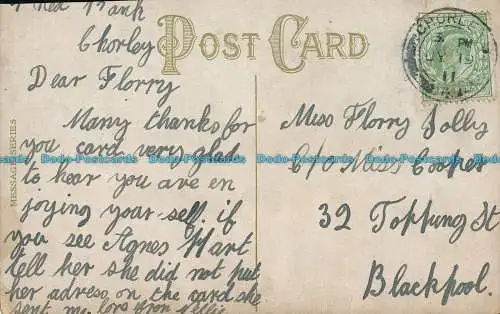 Red Bank
Chorley
POST CARD
Dear Florry
Many thanks for
you card very glad
to hear you are en
joying your self. if
you see Agnes Hart
tell her she did not put
her adress on the card she
sent me love from Nellie
Miss Florry Jolly
C/o Miss Cooper
32 Topping St
Blackpool.
MESSAGE SERIES
CHORLEY
3 PM
JY 19
11
Dodo-Postcards Dodo-Postcards Dodo-Postcards Dodo-Postcards
Dodo-Postcards Dodo-Postcards Dodo-Postcards Dodo-Postcards